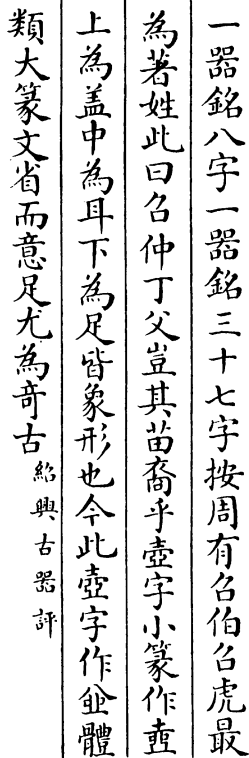 一器銘八字一器銘三十七字按周有召伯召虎最
為著姓此曰召仲丁父豈其苗裔乎壺字小篆作壺
上為盖中為耳下為足皆象形也今此壺字作體
類大篆文省而意足尤為奇古紹興古器評